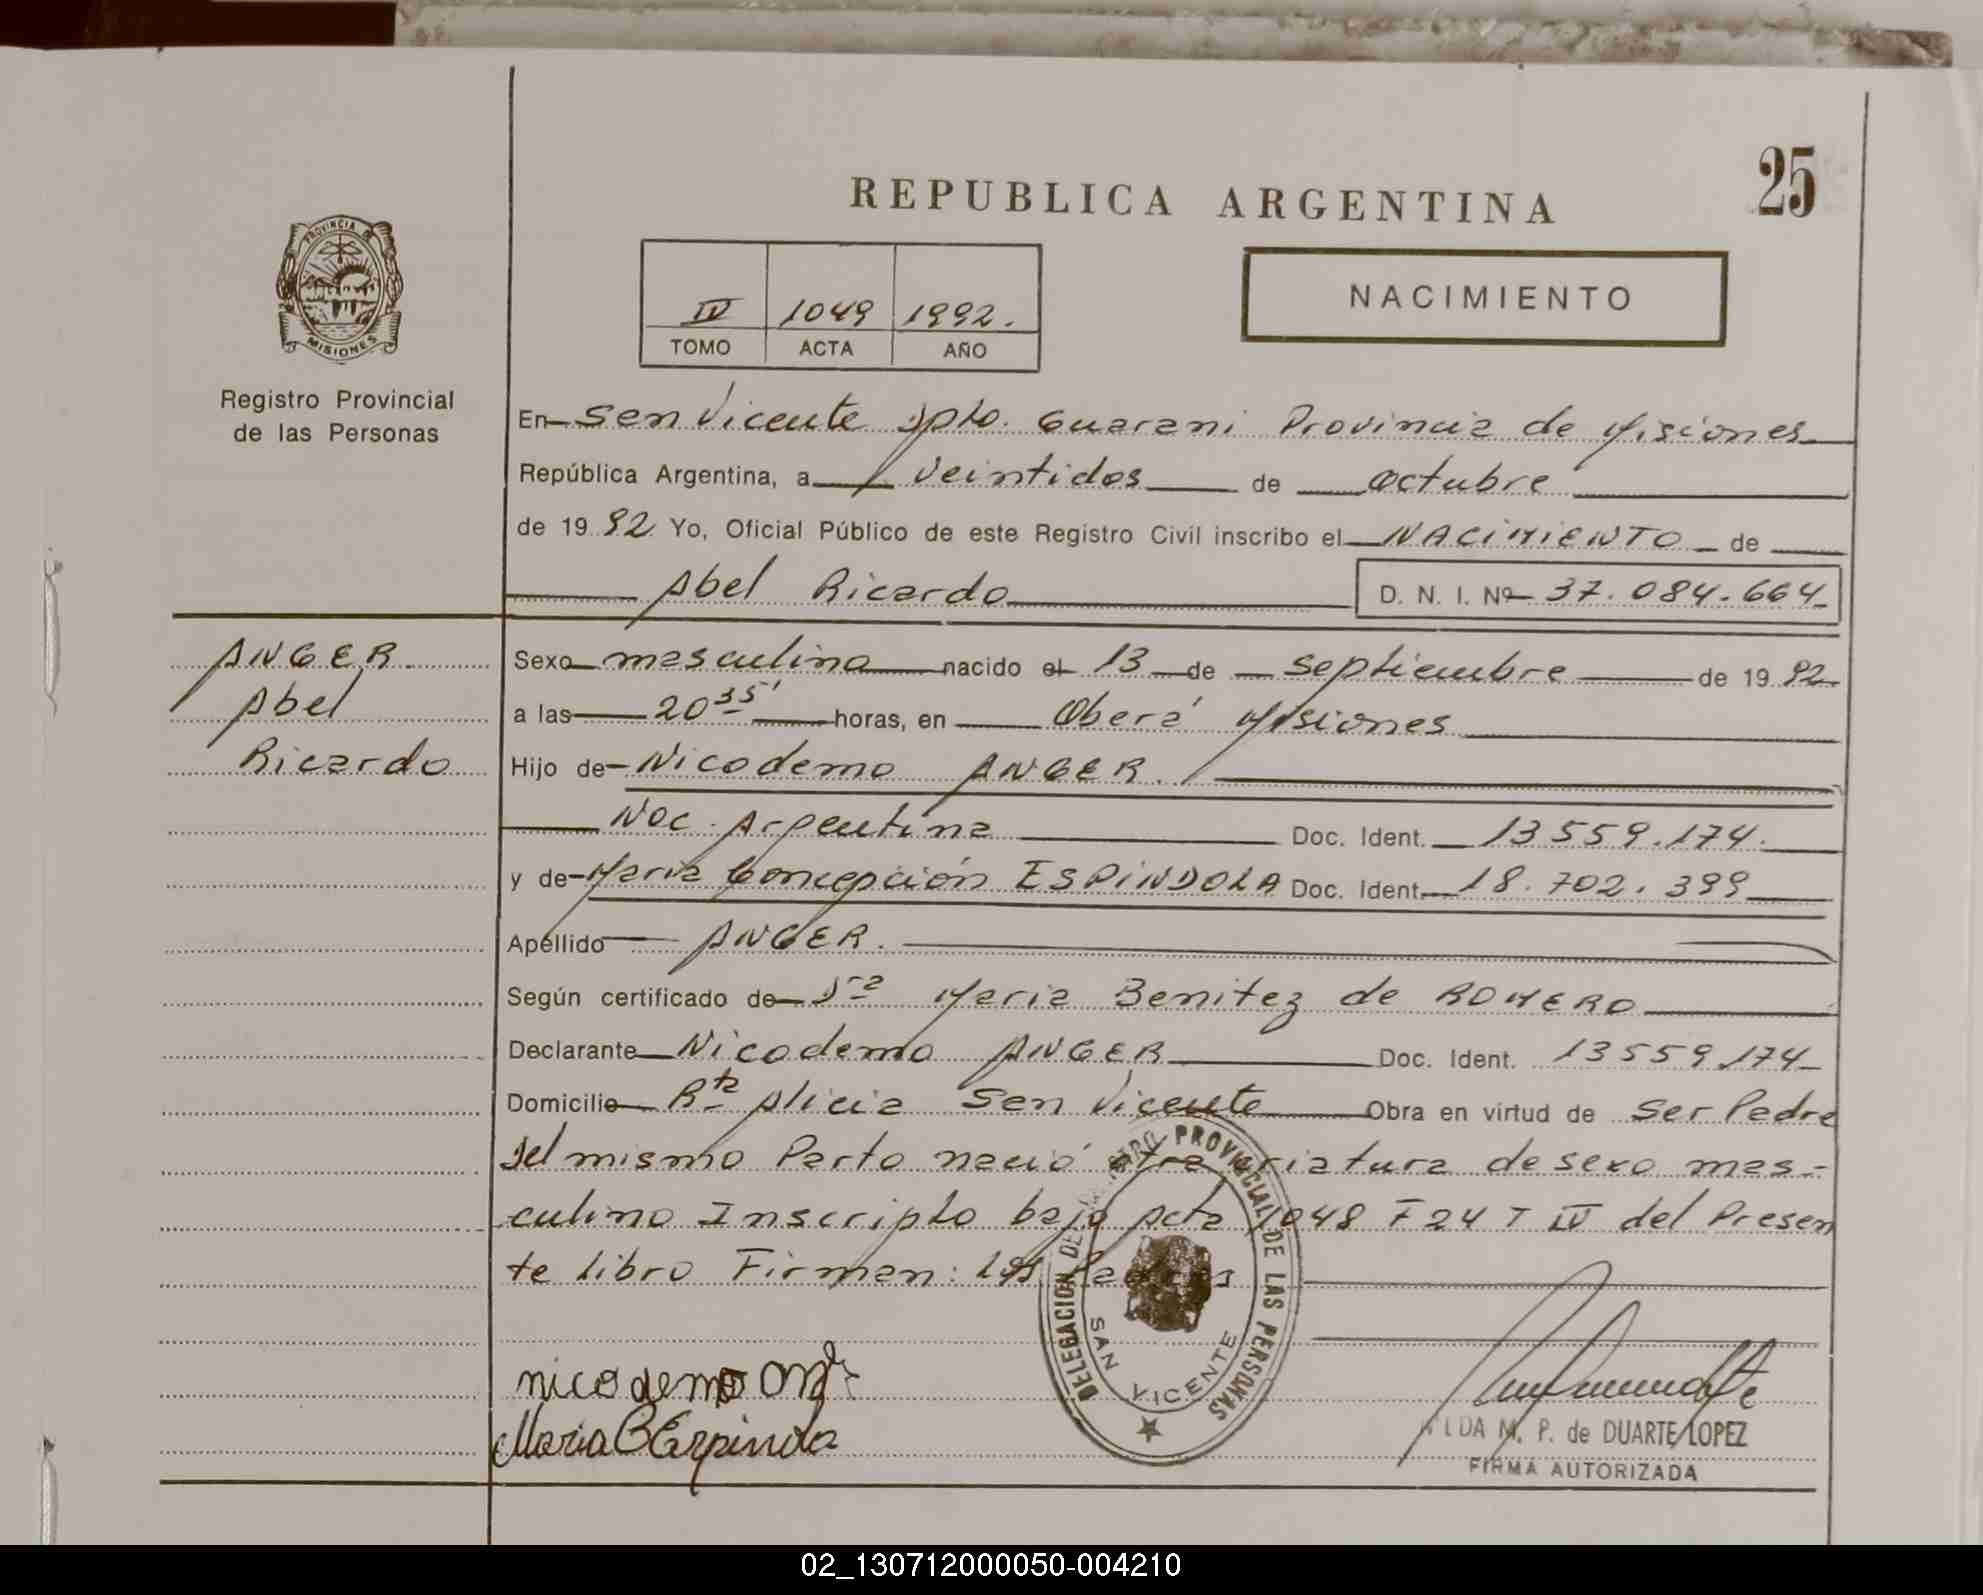 25
REPUBLICA ARGENTINA
PROVINCIA DE
MISIONES
Registro Provincial
de las Personas
IV 1049 1992.
TOMO ACTA AÑO
NACIMIENTO
En San Vicente Dpto. Guarani Provincia de Misiones
República Argentina, a veintidos de octubre
de 1992 Yo, Oficial Público de este Registro Civil inscribo el NACIMIENTO de
Abel Ricardo D. N. I. Nº 37.084.664
ANGER
Abel
Ricardo
Sexo masculino nacido el 13 de septiembre de 1992
a las 20 35' horas, en Oberá Misiones
Hijo de Nicodemo ANGER.
Nac. Argentina Doc. Ident. 13559.174.
y de Maria Concepción ESPINDOLA Doc. Ident. 18.702.399
Apellido ANGER.
Según certificado de Maria Benitez de ROMERO
Declarante Nicodemo ANGER Doc. Ident. 13559.174
Domicilio Rta Alicia San Vicente Obra en virtud de ser Padre
Del mismo Parto nació otra criatura de sexo mas-
culino Inscripto bajo Acta 1048 F 24 T IV del Presen
te libro Firman: los Padres
DELEGACION DEL REGISTRO PROVINCIAL DE LAS PERSONAS
SAN VICENTE
nicodemo
Maria C Espindola
M. P. de DUARTE LOPEZ
FIRMA AUTORIZADA
02_130712000050-004210